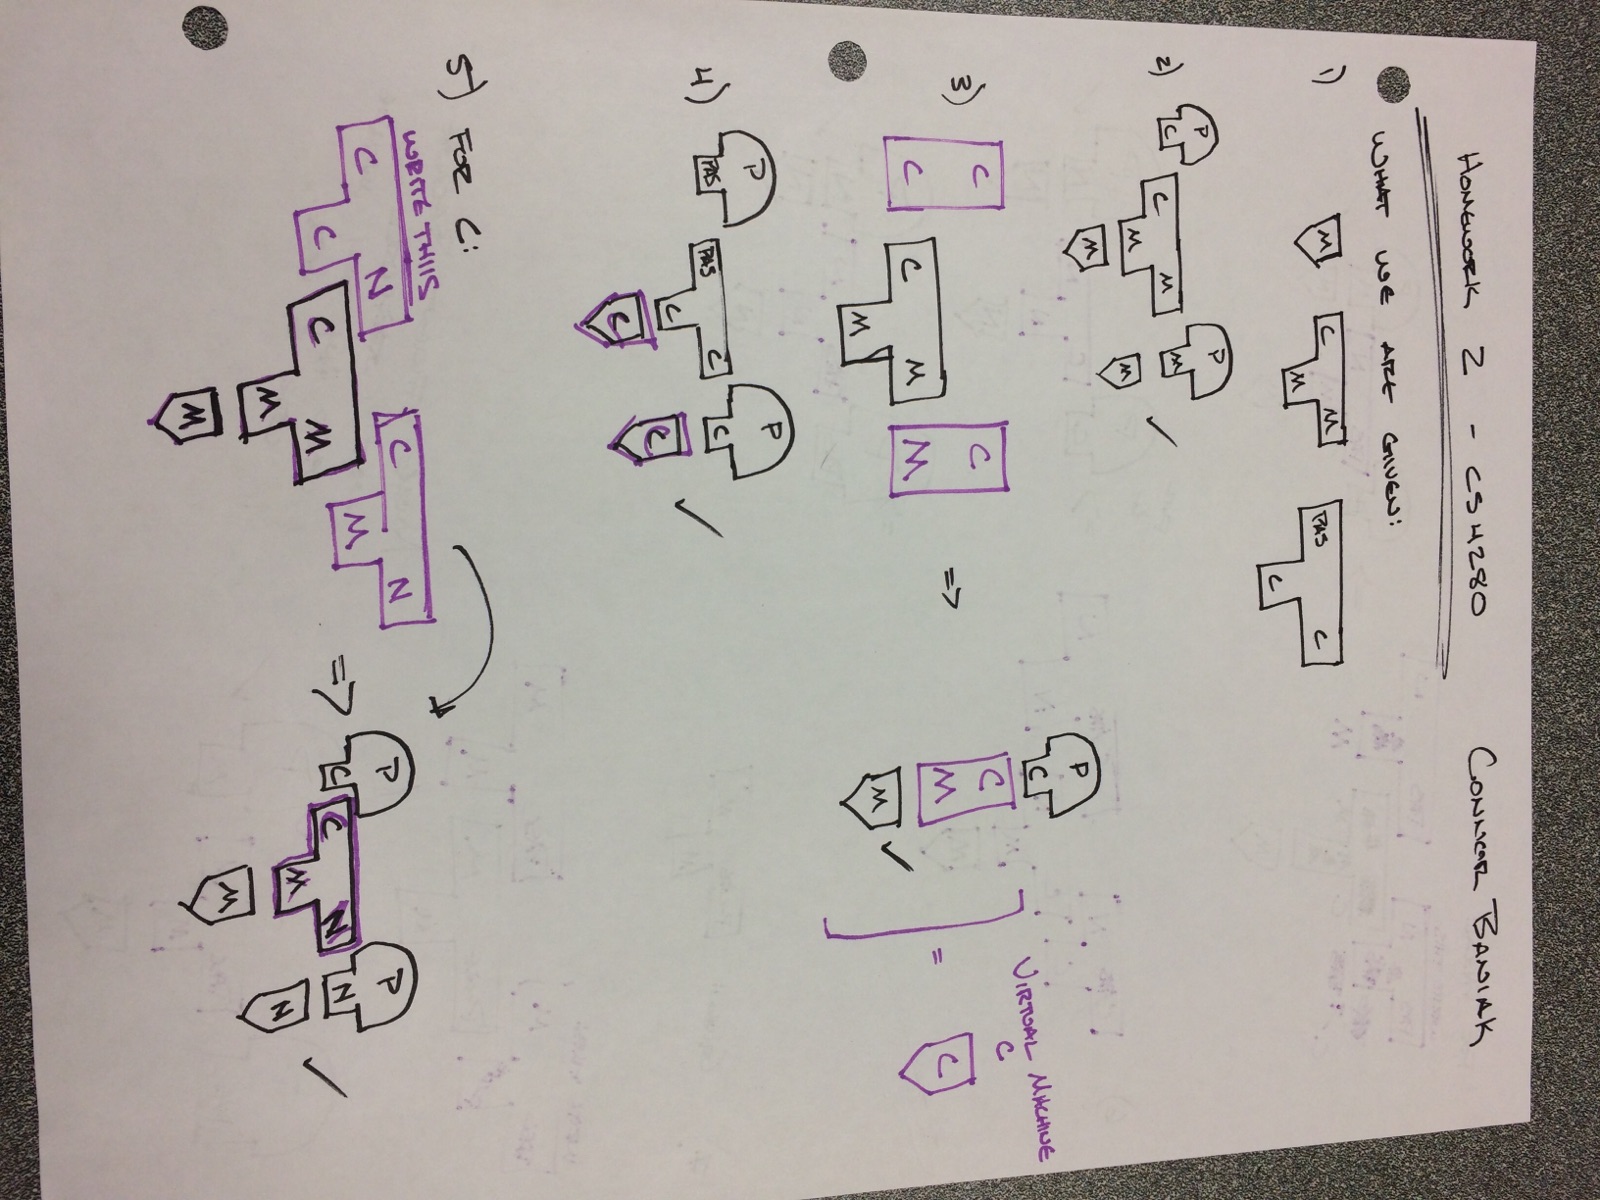 HOMEWORK 2 - CS4280 CONNOR BANIAK
WHAT WE ARE GIVEN:
1) M C M M PAS C C
2) P C C M M M P M M
3) C C C M M C M => P C C M M = C
VIRTUAL MACHINE
C
4) P PAS PAS C C C P C C
5) FOR C:
WRITE THIS
C C N C M M M C M N => P C C M N M P N N